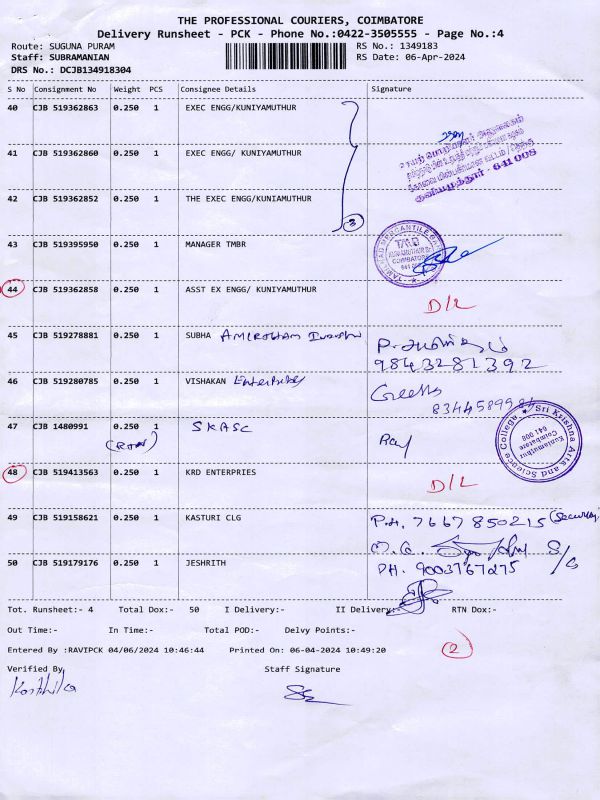 THE PROFESSIONAL COURIERS, COIMBATORE
Delivery Runsheet - PCK - Phone No.:0422-3505555 - Page No.:4
Route: SUGUNA PURAM RS No.: 1349183
Staff: SUBRAMANIAN RS Date: 06-Apr-2024
DRS No.: DCJB134918304
S No Consignment No Weight PCS Consignee Details Signature
40 CJB 519362863 0.250 1 EXEC ENGG/KUNIYAMUTHUR
41 CJB 519362860 0.250 1 EXEC ENGG/ KUNIYAMUTHUR
குனியமுத்தூர் - 641 008
42 CJB 519362852 0.250 1 THE EXEC ENGG/KUNIAMUTHUR
3
43 CJB 519395950 0.250 1 MANAGER TMBR
TAMILNAD MERCANTILE BANK
TMB
COIMBATORE
44 CJB 519362858 0.250 1 ASST EX ENGG/ KUNIYAMUTHUR
D/L
45 CJB 519278881 0.250 1 SUBHA
9843281392
46 CJB 519280785 0.250 1 VISHAKAN Enterprises
Geetha
47 CJB 1480991 0.250 1 SKASC
Sri Krishna Arts and Science College
Kuniamuthur
Coimbatore
641 008
48 CJB 519413563 0.250 1 KRD ENTERPRIES D/L
49 CJB 519158621 0.250 1 KASTURI CLG PH. 7667850215 (Security)
50 CJB 519179176 0.250 1 JESHRITH PH. 9003767275
Tot. Runsheet:- 4 Total Dox:- 50 I Delivery:- II Delivery:- RTN Dox:-
Out Time:- In Time:- Total POD:- Delvy Points:-
Entered By :RAVIPCK 04/06/2024 10:46:44 Printed On: 06-04-2024 10:49:20
2
Verified By Staff Signature
Karthika